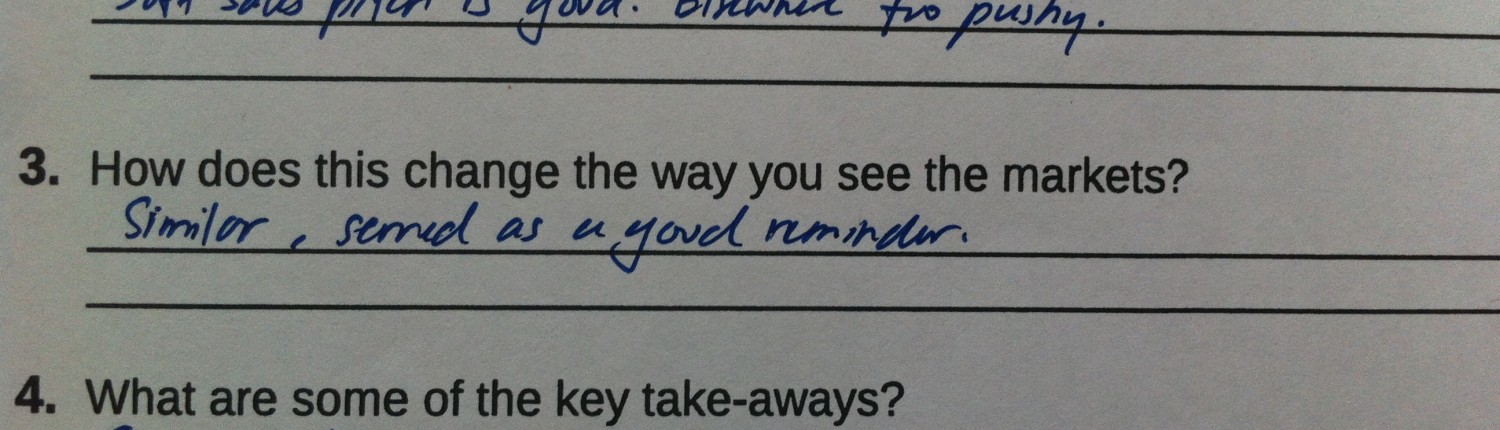 Soft sales pitch is good. Otherwise too pushy.
3. How does this change the way you see the markets?
Similar, served as a good reminder.
4. What are some of the key take-aways?